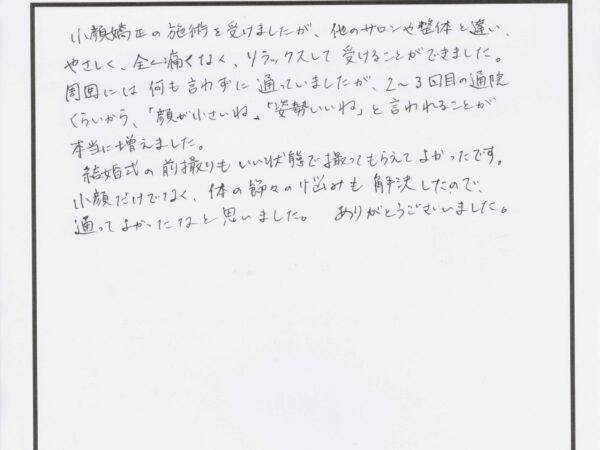 小顔矯正の施術を受けましたが、他のサロンや整体と違い、
やさしく、全く痛くなく、リラックスして受けることができました。
周囲には何も言わずに通っていましたが、2〜3回目の通院
くらいから、「顔が小さいね」、「姿勢いいね」と言われることが
本当に増えました。
結婚式の前撮りもいい状態で撮ってもらえてよかったです。
小顔だけでなく、体の節々の悩みも解決したので、
通ってよかったなと思いました。 ありがとうございました。